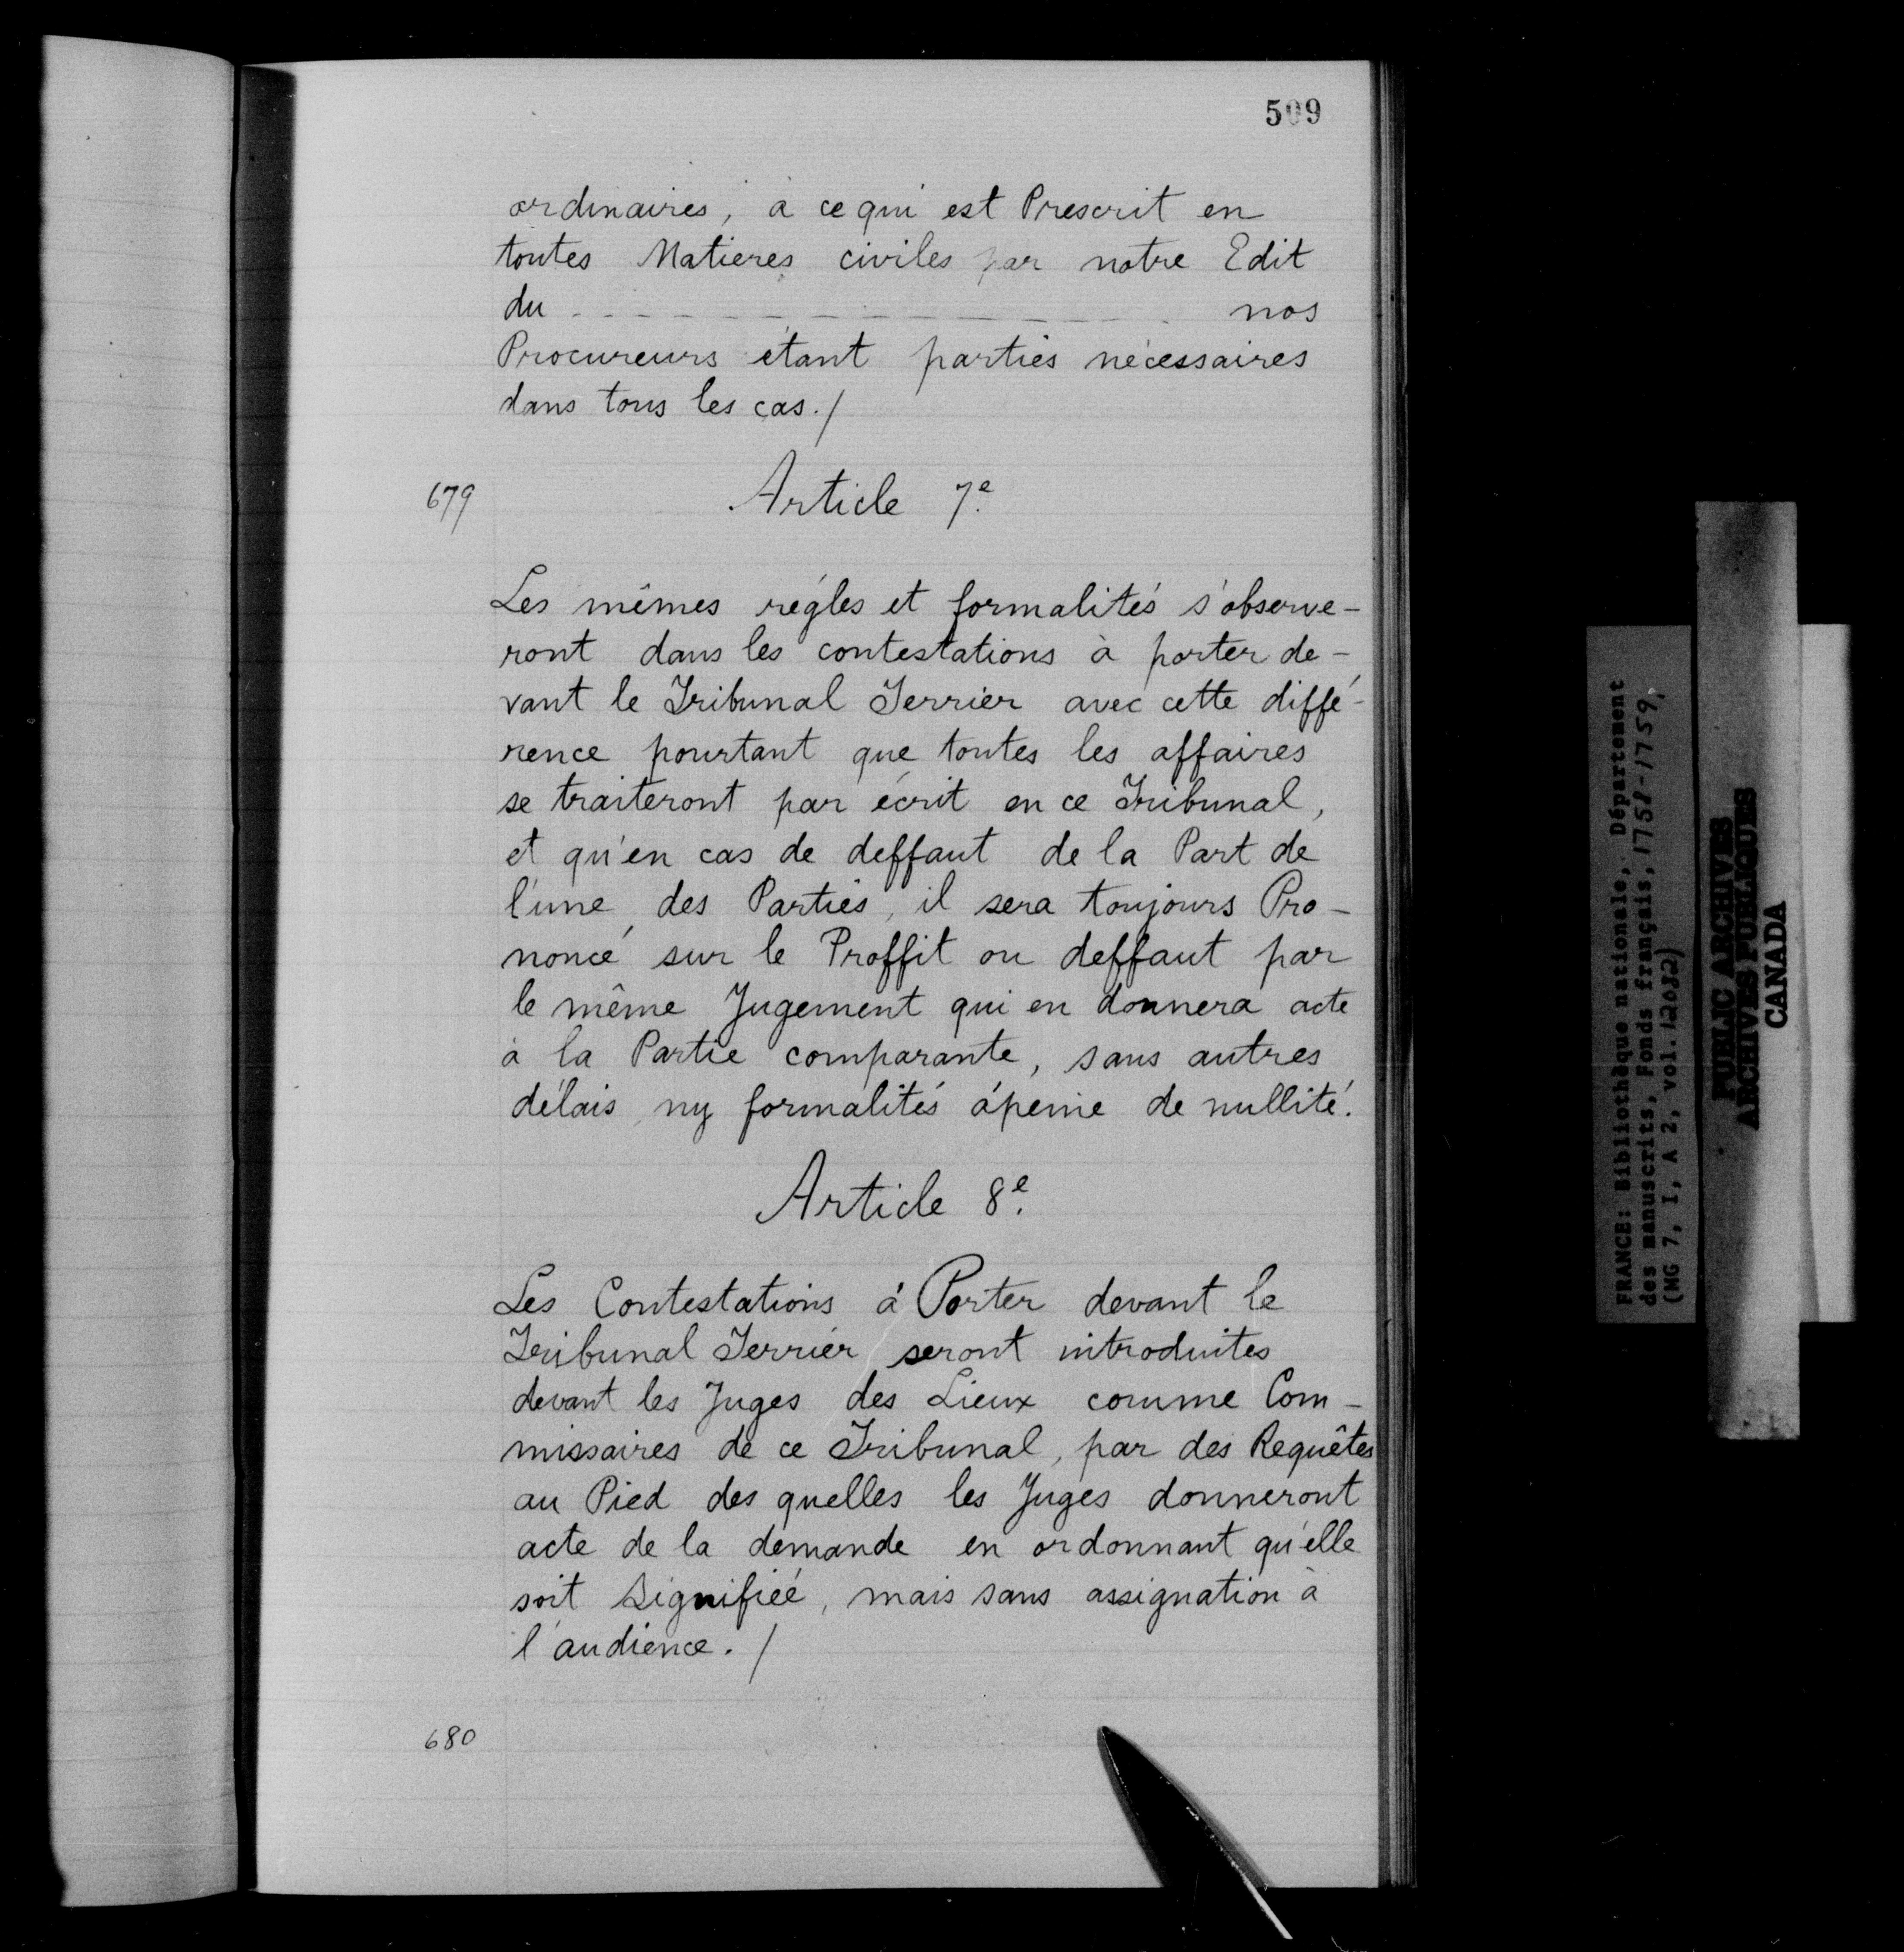 509
ordinaires, à ce qui est Prescrit en
toutes Matieres civiles par notre Edit
du - - - - - - - - - - - - - - nos
Procureurs étant parties nécessaires
dans tous les cas./
679
Article 7e.
Les mêmes régles et formalités s'observe-
ront dans les contestations à porter de-
vant le Tribunal Terrier avec cette diffé-
rence pourtant que toutes les affaires
se traiteront par écrit en ce Tribunal,
et qu'en cas de deffaut de la Part de
l'une des Parties, il sera toujours Pro-
noncé sur le Proffit ou deffaut par
le même Jugement qui en donnera acte
à la Partie comparante, sans autres
délais ny formalités ápeine de nullité.
Article 8e.
Les Contestations á Porter devant le
Tribunal Terrier seront introduites
devant les Juges des Lieux comme Com-
missaires de ce Tribunal, par des Requêtes
au Pied des quelles les Juges donneront
acte de la demande en ordonnant qu'elle
soit Signifiée, mais sans assignation à
l'audience./
680
FRANCE: Bibliothèque nationale, Département
des manuscrits, Fonds français, 1758-1759,
(MG 7, I, A 2, vol. 12032)
PUBLIC ARCHIVES
ARCHIVES PUBLIQUES
CANADA